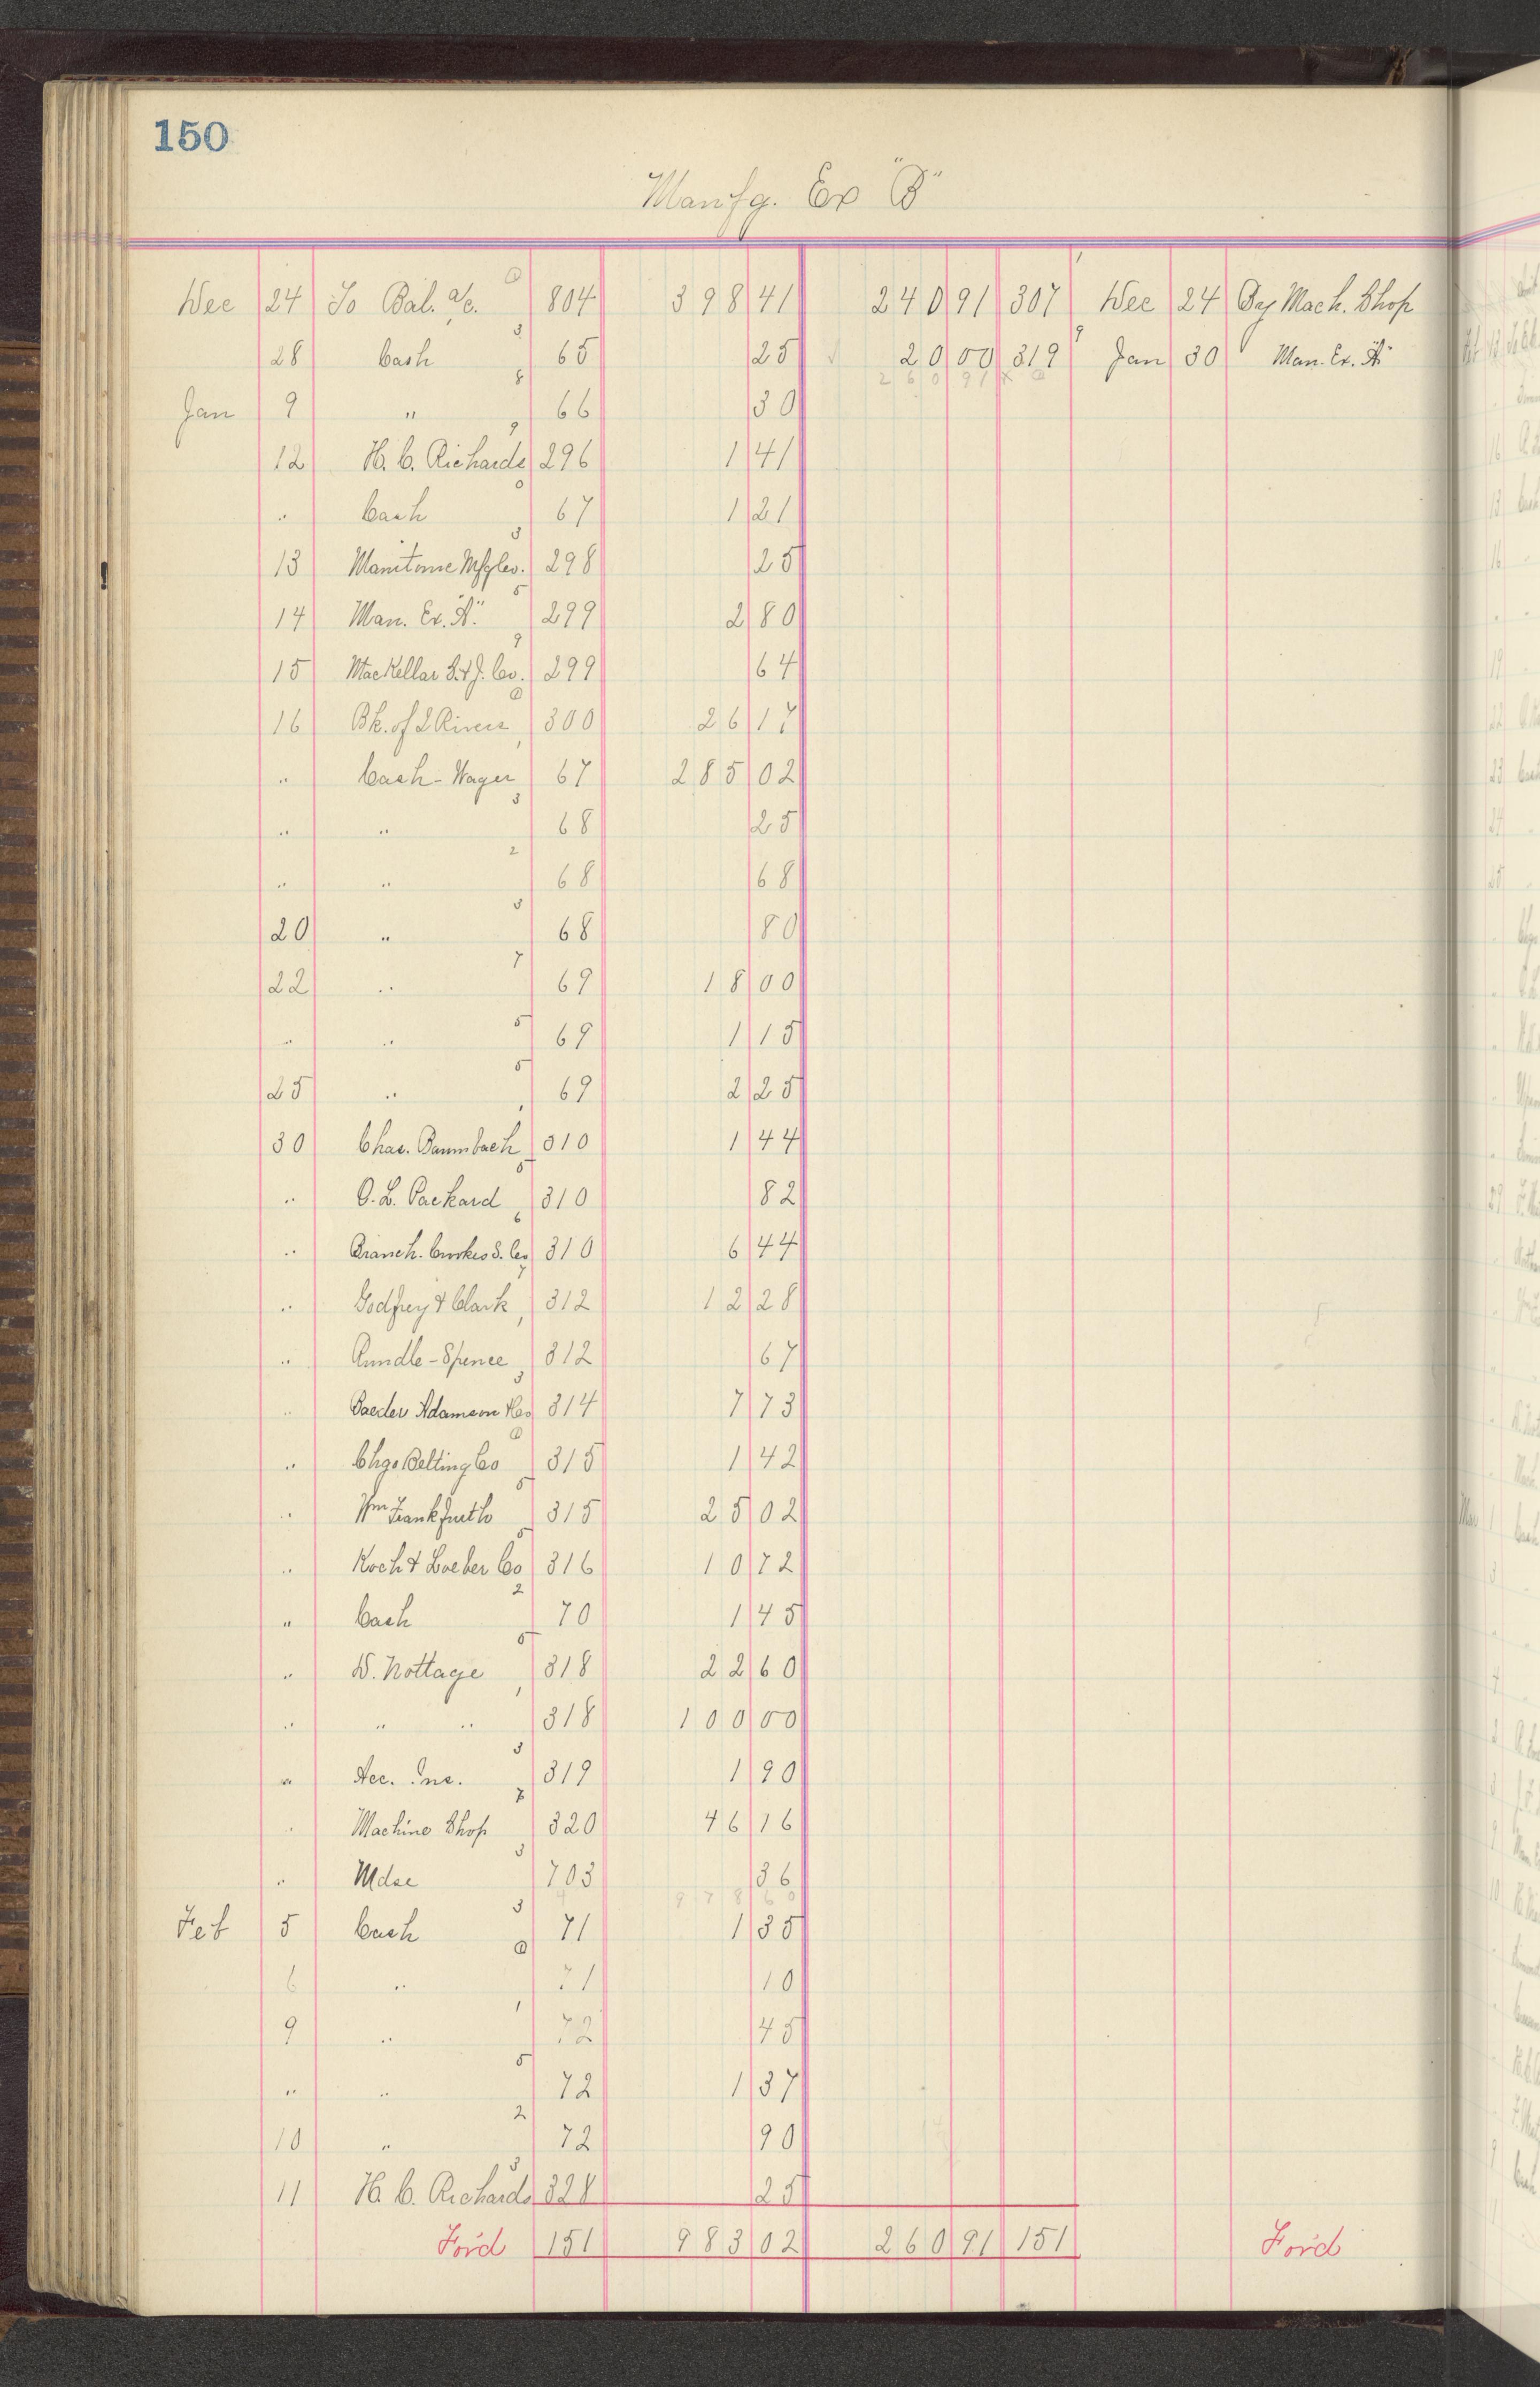 150
Manfg. Ex "B"
Dec 24 To Bal. a/c. 304 398 41 240 91 307 Dec 24 By Mach. Shop
28 Cash 65 25 20 00 319 Jan 30 Man. Ex. "A"
260 91
Jan 9 " 66 30
12 H. C. Richards 296 1 41
" Cash 67 1 21
13 Manitowoc Mfg Co. 298 25
14 Man. Ex. "A" 299 2 80
15 MacKellar S. & J. Co. 299 64
16 Bk. of 2 Rivers 300 26 17
" Cash - Wages 67 285 02
" " 68 25
" " 68 68
20 " 68 80
22 " 69 18 00
" " 69 1 15
25 " 69 2 25
30 Chas. Baumbach 310 1 44
" O. L. Packard 310 82
" Branch. Crookes S. Co 310 6 44
" Godfrey & Clark 312 12 28
" Rundle-Spence 312 67
" Baeder Adamson & Co 314 7 73
" Chgo Belting Co 315 1 42
" Wm Frankfurth 315 25 02
" Koch & Loeber Co 316 10 72
" Cash 70 1 45
" D. Nottage 318 22 60
" " " 318 100 00
" Acc. Ins. 319 1 90
" Machine Shop 320 46 16
" Mdse 703 36
978 60
Feb 5 Cash 71 1 35
6 " 71 10
9 " 72 45
" " 72 1 37
10 " 72 90
11 H. C. Richards 328 25
For'd 151 983 02 260 91 151 For'd